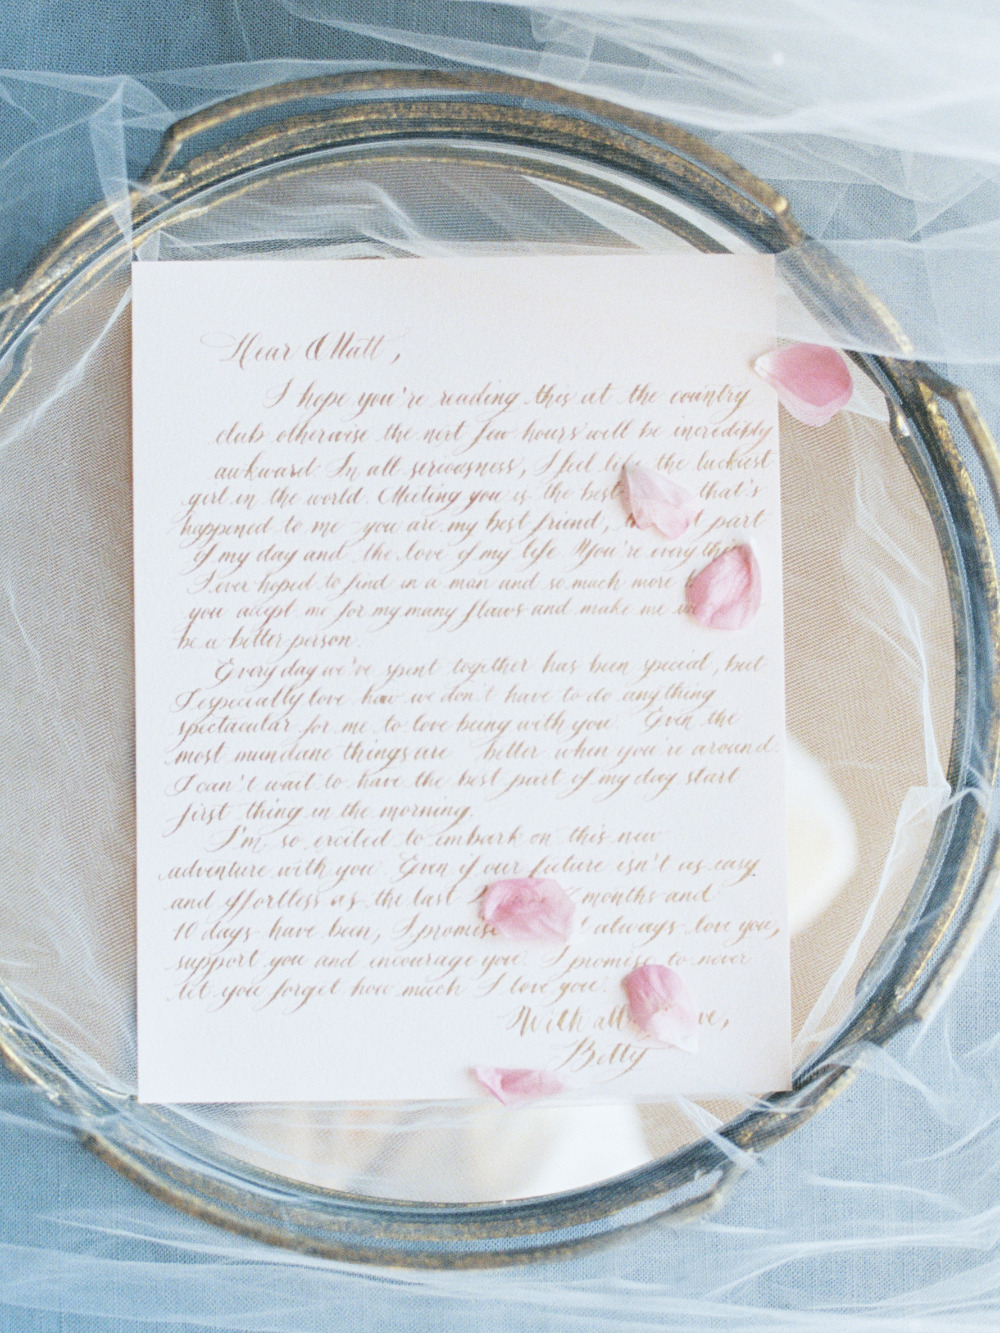 Dear Matt,
I hope you're reading this at the country
club otherwise the next few hours will be incredibly
awkward. In all seriousness, I feel like the luckiest
girl in the world. Meeting you is the best that's
happened to me - you are my best friend, part
of my day and the love of my life. You're every
I ever hoped to find in a man and so much more
you accept me for my many flaws and make me
be a better person.
Everyday we've spent together has been special, but
I especially love how we don't have to do anything
spectacular for me to love being with you. Even the
most mundane things are better when you're around.
I can't wait to have the best part of my day start
first thing in the morning.
I'm so excited to embark on this new
adventure with you. Even if our future isn't as easy
and effortless as the last months and
10 days have been, I promise always love you,
support you and encourage you. I promise to never
let you forget how much I love you.
With all
Betty